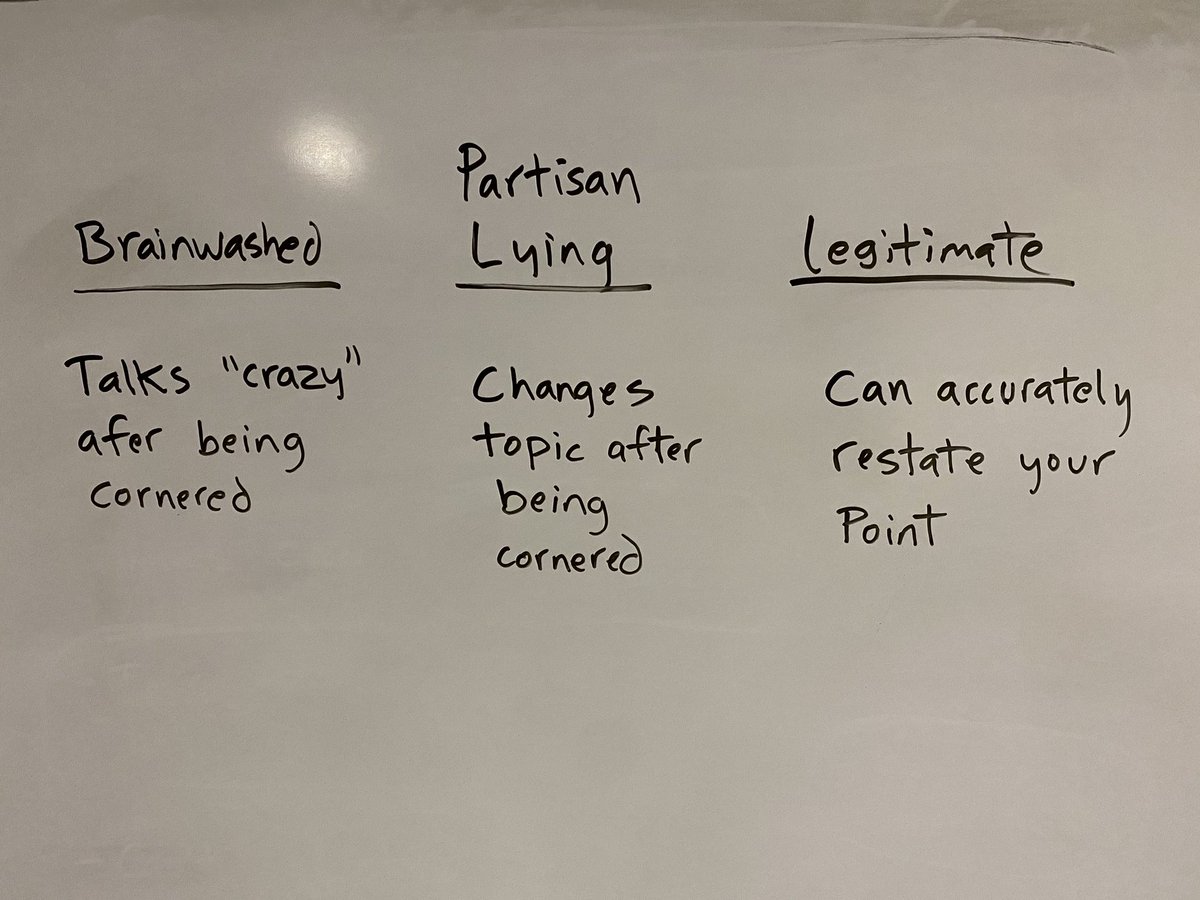 Brainwashed
Talks "crazy"
afer being
cornered
Partisan
Lying
Changes
topic after
being
cornered
Legitimate
Can accurately
restate your
Point